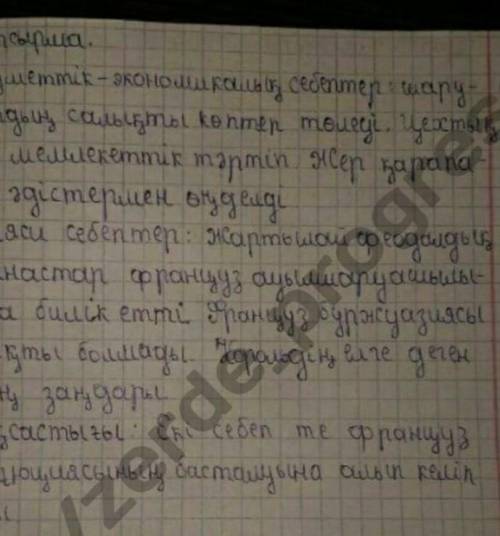 псырма.
уметтік-экономикалық себептер: шару-
дың салықты көптер төледі. Цехтық
мемлекеттік тәртіп Жер қарапа-
әдістермен өңделді
яси себептер: жартылай феодалдық
настар француз ауылшаруашылы-
а билік етті Француз буржуазиясы
қты болмады. Корольдің елге деген
ң заңдары
қсастығы: Екі себеп те француз
люциясының басталуына алып келіп
/zerde_progres